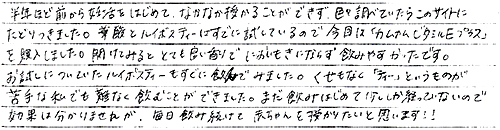 半年ほど前から妊活をはじめて、なかなか授かることができず、色々調べていたらこのサイトに
たどりつきました。葉酸とルイボスティーはすでに試しているので今回は「カムカムビタミンEプラス」
を購入しました。開けてみるととても良い香りで においもきにならず 飲みやすかったです。
お試しについていたルイボスティーもすぐに飲んでみました。くせもなく「ティー」というものが
苦手な私でも難なく飲むことができました。まだ飲みはじめて少ししか経っていないので
効果は分かりませんが、毎日飲み続けて 赤ちゃんを授かりたいと思います!!